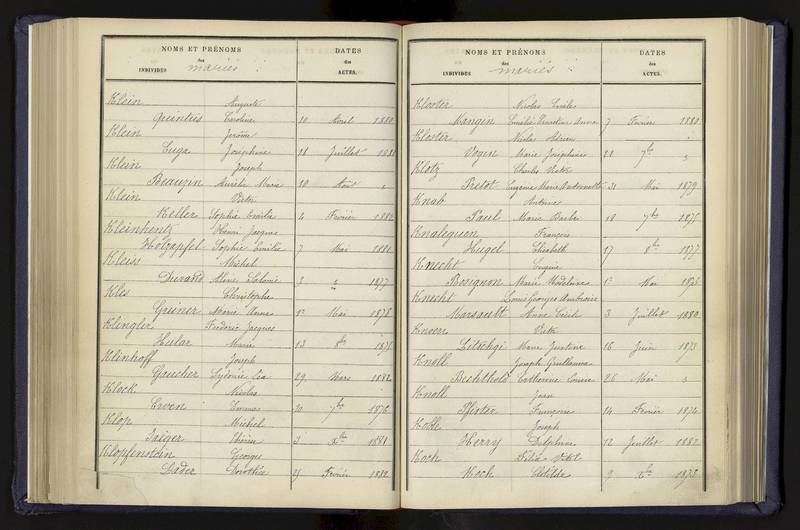 NOMS ET PRÉNOMS DATES
des des
INDIVIDUS mariés : ACTES.
Klein Auguste
Quintus Caroline 10 Avril 1880
Klein Jérôme
Cuga Joséphine 11 Juillet
Klein Joseph
Beauzin Marie 10 Août "
Klein Victor
Keller Sophie Emilie 4 Février 1882
Kleinhentz Henri Jacques
Holzapfel Sophie Emilie 7 Mai
Kleiss Michel
Durand 3 " 1877
Kles Christophe
Greiner Marie Anne 1er Mai 1878
Klingler Frédéric Jacques
Hular Marie 13 8bre 1875
Klinhoff Joseph
Gaucher Sydonie Léa 29 Mars 1882
Klock Nicolas
Croen Emma 20 7bre 1876
Klop Michel
Jaiger Thérèse 3 Xbre 1881
Klopfenstein Georges
Dader Dorothée 25 Février 1882
NOMS ET PRÉNOMS DATES
des des
INDIVIDUS mariés : ACTES.
Kloster Nicolas Emile
Mangin Emélie Anna 7 Février 1880
Kloster Nicolas Adrien
Vogin Marie Joséphine 28 7bre "
Klotz Charles Victor
Pretot Eugénie Marie Antoinette 31 Mai 1879
Knab Antoine
Paul Marie Barbe 18 7bre 1875
Knaleguen François
Hugel Elisabeth 17 8bre 1877
Knecht Eugène
Bosignon Marie Madeleine 1er Mai 1875
Knecht Louis Georges Ambroise
Marsault Anne Cécile 3 Juillet 1880
Knoerr Victor
Litschgi Marie Justine 16 Juin 1873
Knoll Joseph Guillaume
Bechthold Catherine Louise 26 Mai "
Knoll Jean
Pfister Françoise 14 Février 1874
Koble Joseph
Herry Delphine 12 Juillet 1882
Koch Félix Victor
Koch Clotilde 9 Xbre 1873